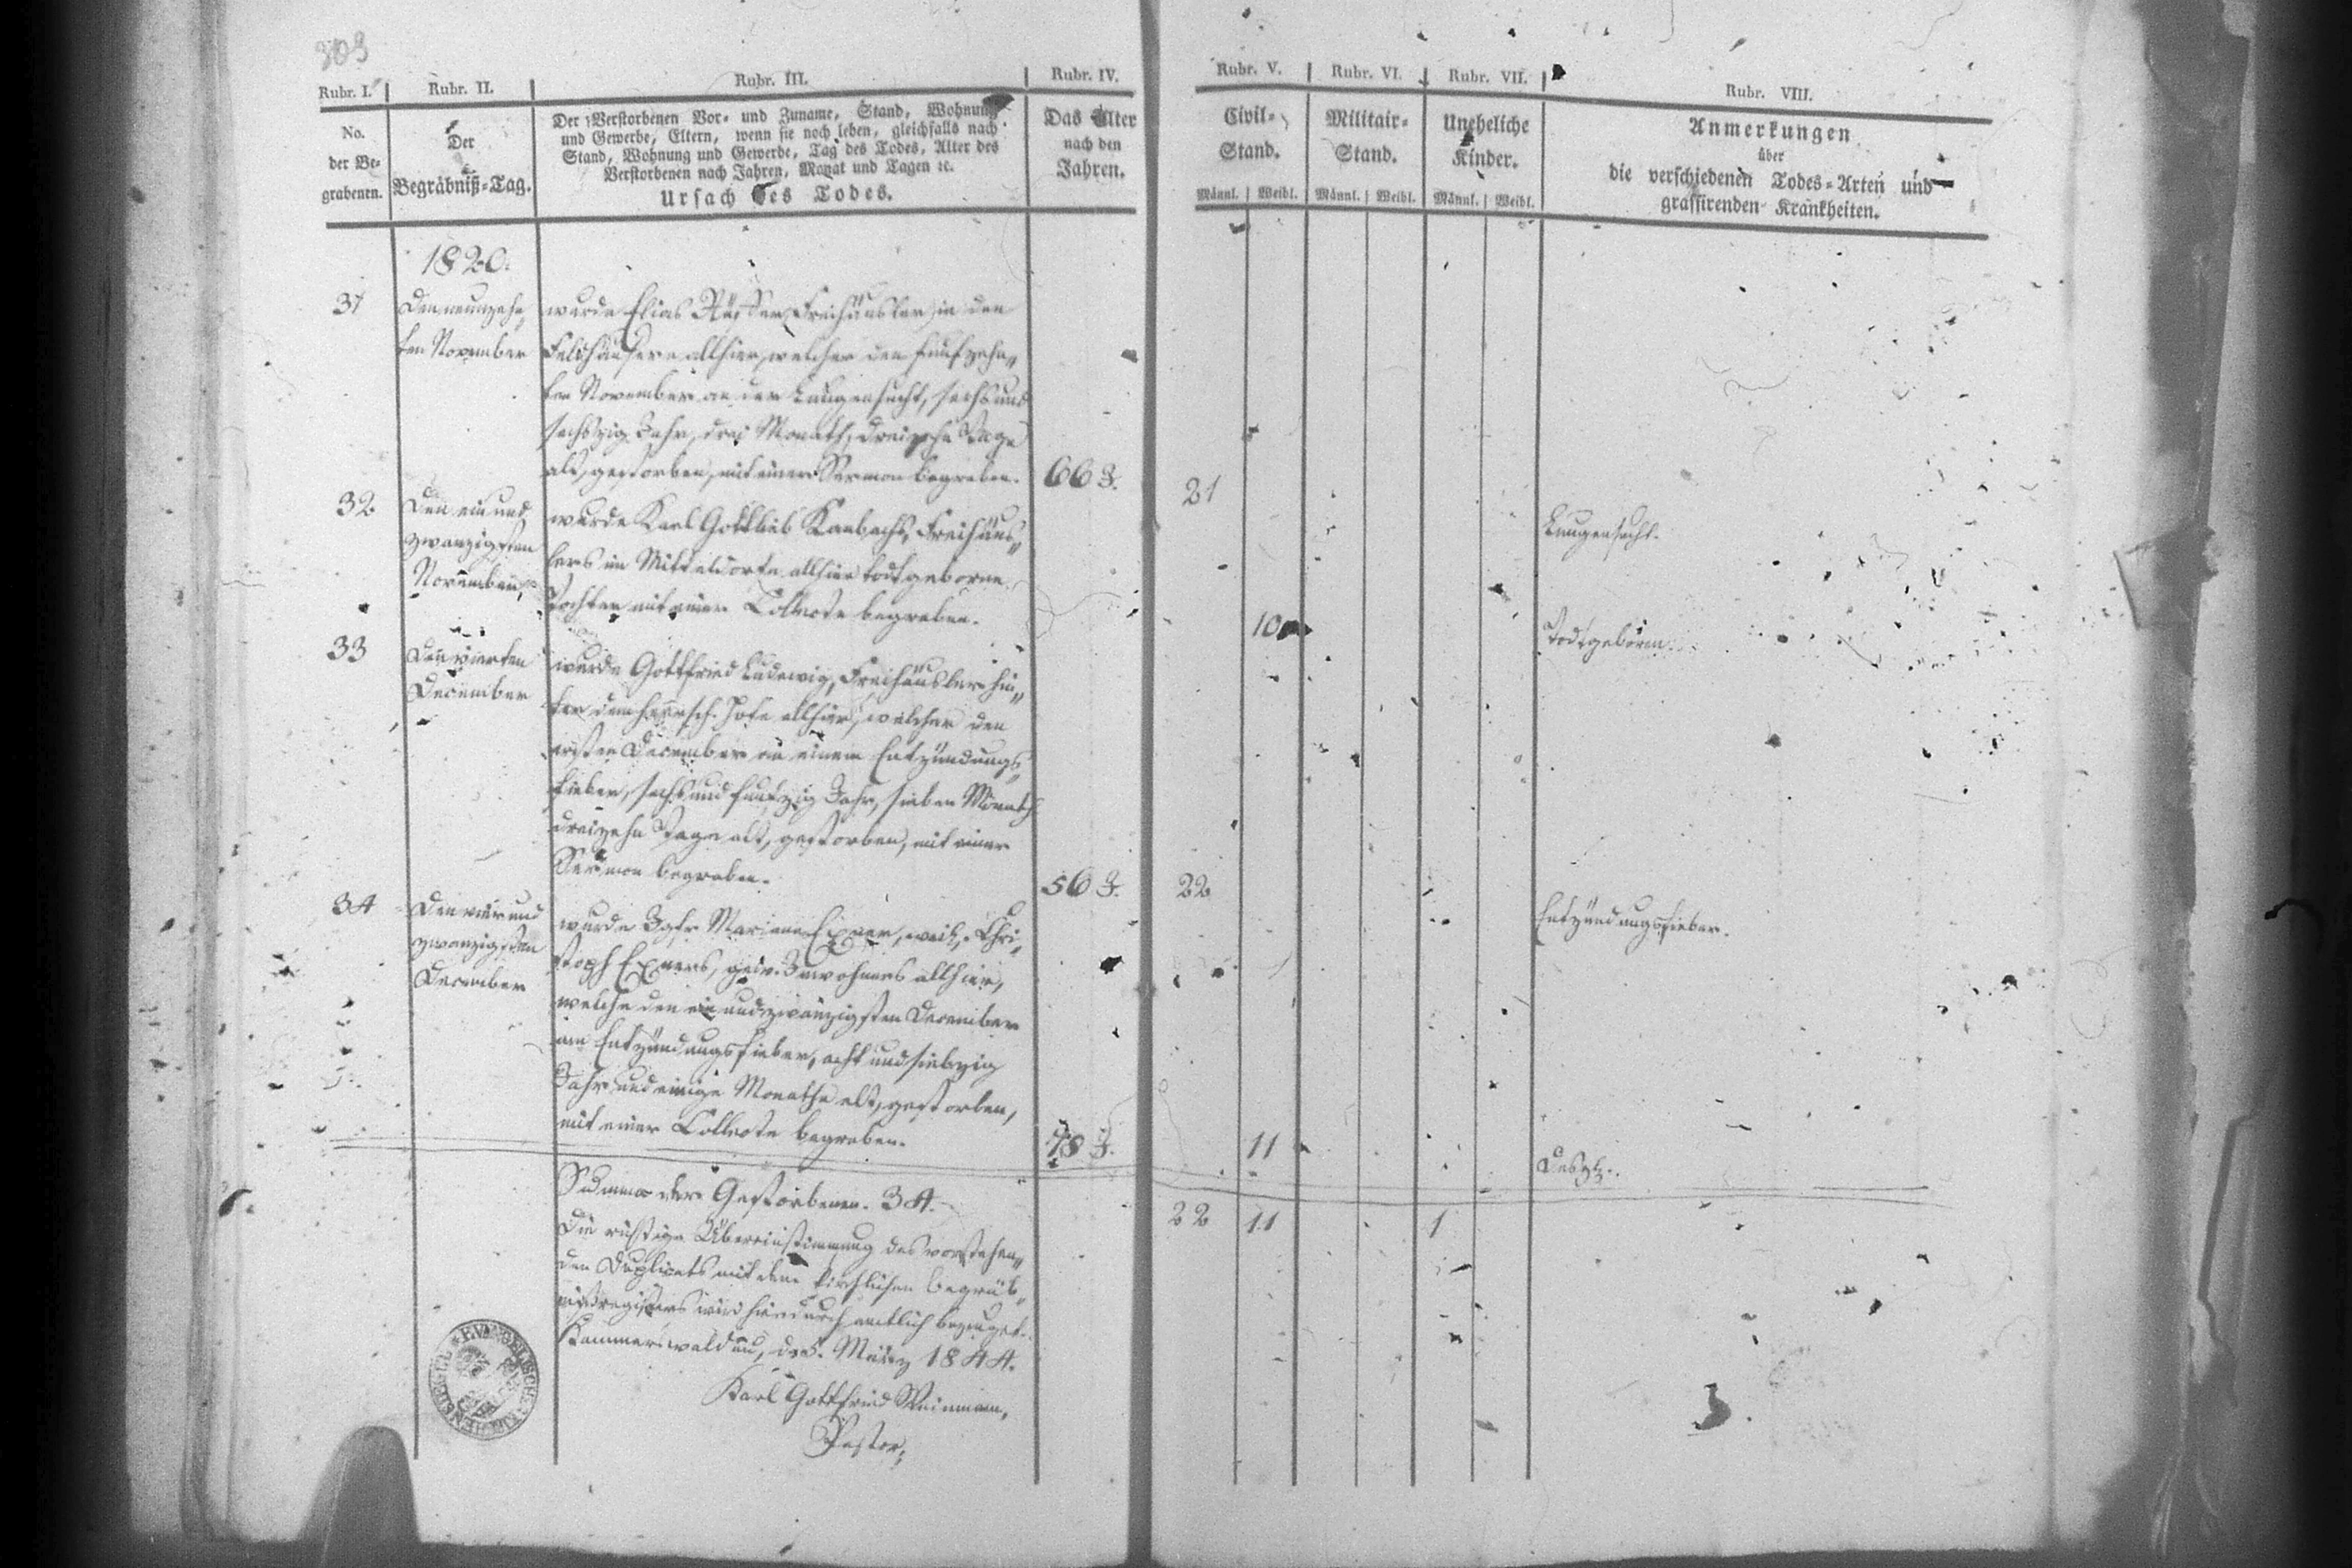 303
Rubr. I.
Rubr. II.
Rubr. III.
Rubr. IV.
Rubr. V.
Rubr. VI.
Rubr. VII.
Rubr. VIII.
No.
der Be-
grabenen.
Der
Begräbniß-Tag.
Der Verstorbenen Vor- und Zuname, Stand, Wohnung
und Gewerbe, Eltern, wenn sie noch leben, gleichfalls nach
Stand, Wohnung und Gewerbe, Tag des Todes, Alter des
Verstorbenen nach Jahren, Monat und Tagen ꝛc.
Ursach des Todes.
Das Alter
nach den
Jahren.
Civil-
Stand.
Männl. Weibl.
Militair-
Stand.
Männl. Weibl.
Uneheliche
Kinder.
Männl. Weibl.
Anmerkungen
über
die verschiedenen Todes-Arten und
grassirenden Krankheiten.
1820.
31
Den neunzehn
ten November
wurde Elias Freihäusler in den
Feldhäusern allhier, welcher den funfzehn
ten November an der Lungensucht, sechs und
sechszig Jahr, drei Monath, dreizehn Tage
alt, gestorben, mit einer Sermon begraben.
66 J.
21
Lungensucht.
32
Den ein und
zwanzigsten
November
wurde Karl Gottlieb Freihäus
lers im Mitteldorfe allhier todtgeborne
Tochter mit einer Collecte begraben.
10
Todtgeboren.
33
Den vierten
December
wurde Gottfried Ludewig, Freihäusler hin
ter dem herrsch. Hofe allhier, welcher den
ersten December an einem Entzündungs
fieber, sechs und funfzig Jahr, sieben Monath
dreizehn Tage alt, gestorben, mit einer
Sermon begraben.
56 J.
22
Entzündungsfieber.
34
Den vier und
zwanzigsten
December
wurde Jgfr. Mariana Exner, weil. Chri
stoph Exners, gew. Inwohners allhier,
welche den ein und zwanzigsten December
am Entzündungsfieber, acht und siebzig
Jahr und einige Monathe alt, gestorben,
mit einer Collecte begraben.
78 J.
11
Desgl.
Summa der Gestorbenen. 34.
22 11 1
Die richtige Übereinstimmung des vorstehen
den Duplicats mit dem kirchlichen Begräb
nißregisters wird hierdurch amtlich bezeuget.
Kammerswaldau, d. 5. März 1844.
Karl Gottfried
Pastor.